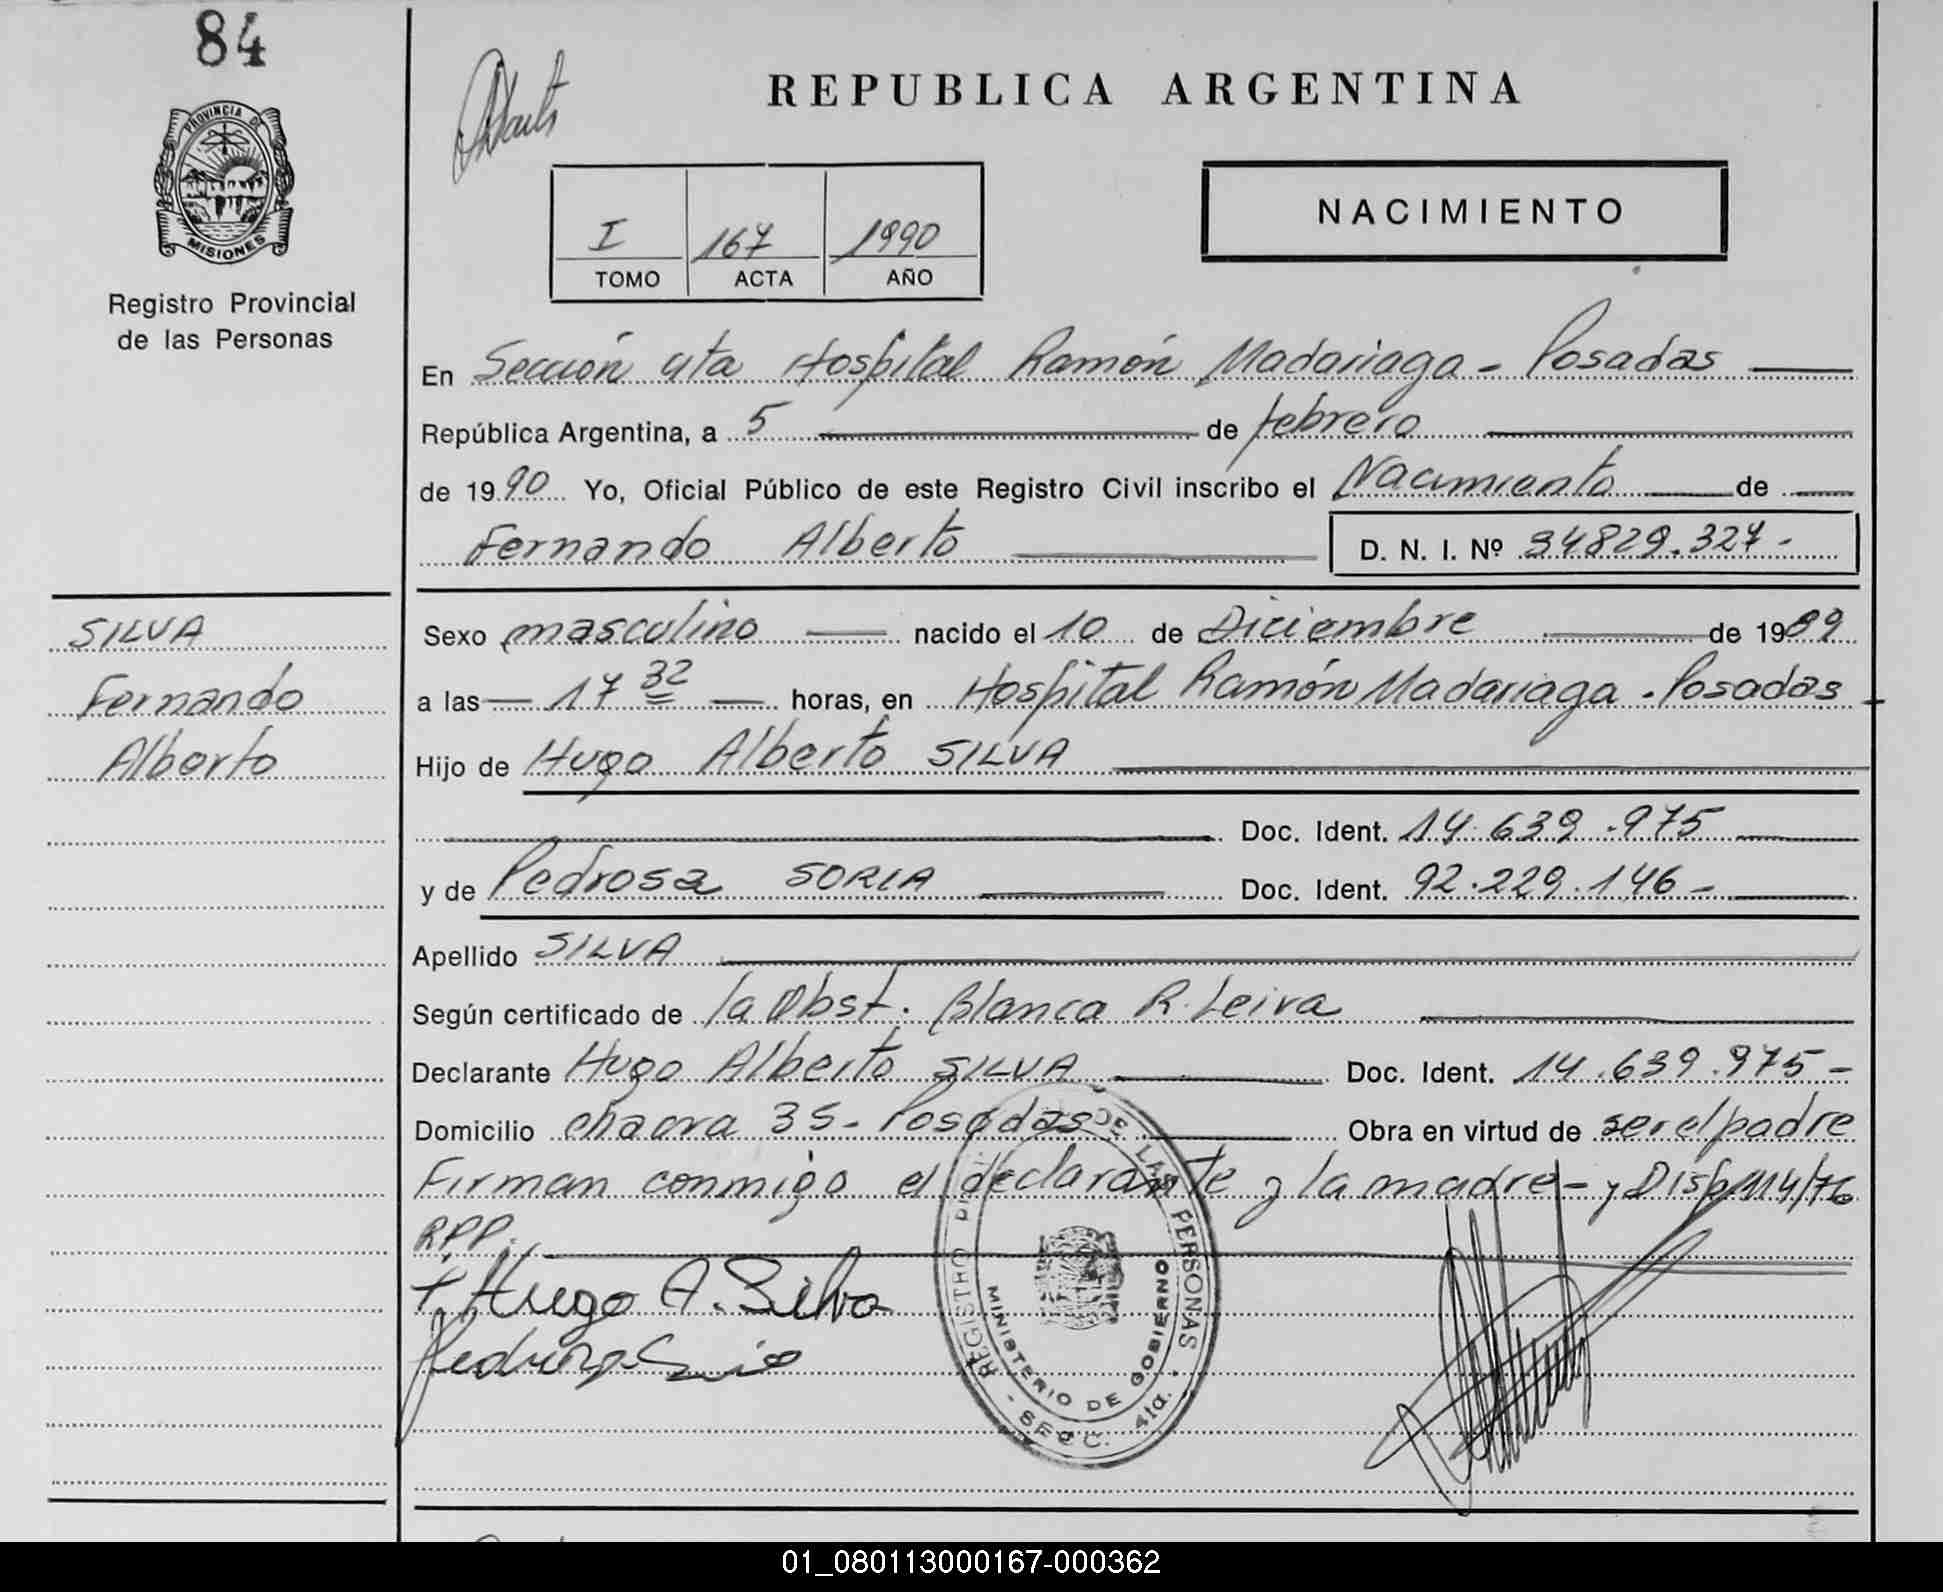 84
REPUBLICA ARGENTINA
PROVINCIA DE
MISIONES
Registro Provincial
de las Personas
NACIMIENTO
I 167 1990
TOMO ACTA AÑO
En Sección 4ta Hospital Ramón Madariaga - Posadas
República Argentina, a 5 de febrero
de 1990 Yo, Oficial Público de este Registro Civil inscribo el Nacimiento de
Fernando Alberto D. N. I. Nº 34829.327-
SILVA
Fernando
Alberto
Sexo masculino nacido el 10 de Diciembre de 1989
a las 17 32 horas, en Hospital Ramón Madariaga - Posadas
Hijo de Hugo Alberto SILVA
Doc. Ident. 14.639.975
y de Pedrosa SORIA Doc. Ident. 92.229.146-
Apellido SILVA
Según certificado de la Obst. Blanca R. Leiva
Declarante Hugo Alberto SILVA Doc. Ident. 14.639.975-
Domicilio chacra 35- Posadas Obra en virtud de ser el padre
Firman conmigo el declarante y la madre- y Disp 114/76
RPP.
Hugo A. Silva
REGISTRO DE LAS PERSONAS
MINISTERIO DE GOBIERNO
- SECC. 4ta.
01_080113000167-000362